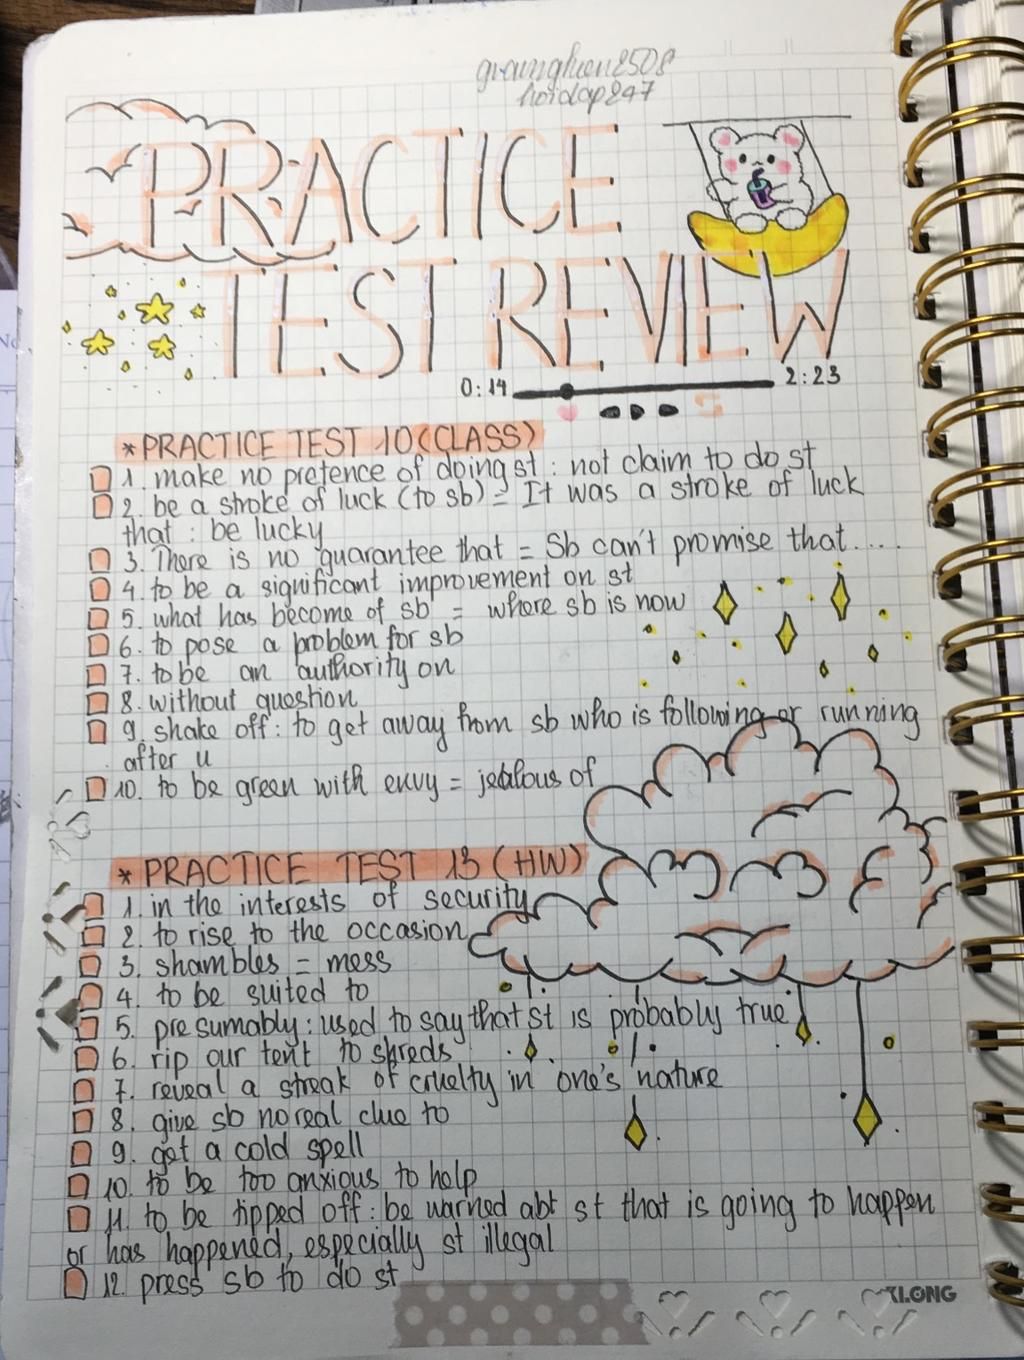 hoidap247
PRACTICE
TEST REVIEW
0:14 2:23
* PRACTICE TEST 10 (CLASS)
1. make no pretence of doing st : not claim to do st
2. be a stroke of luck (to sb) = It was a stroke of luck
that : be lucky
3. There is no guarantee that = Sb can't promise that....
4. to be a significant improvement on st
5. what has become of sb = where sb is now
6. to pose a problem for sb
7. to be an authority on
8. without question
9. shake off : to get away from sb who is following or running
after u
10. to be green with envy = jealous of
* PRACTICE TEST 13 (HW)
1. in the interests of security
2. to rise to the occasion
3. shambles = mess
4. to be suited to
5. presumably : used to say that st is probably true
6. rip our tent to shreds
7. reveal a streak of cruelty in one's nature
8. give sb no real clue to
9. get a cold spell
10. to be too anxious to help
11. to be tipped off : be warned abt st that is going to happen
or has happened, especially st illegal
12. press sb to do st
KLONG